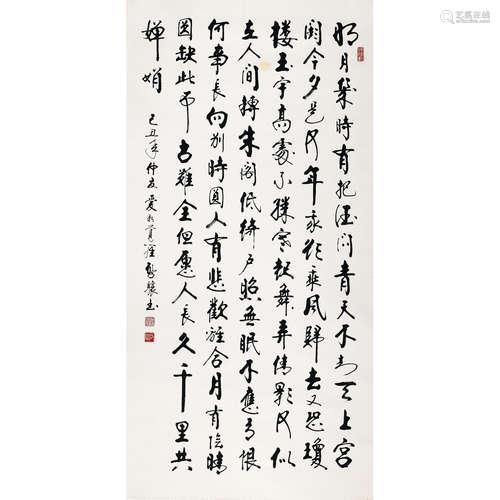 明月幾時有把酒問青天不知天上宮
闕今夕是何年我欲乘風歸去又恐瓊
樓玉宇高處不勝寒起舞弄清影何似
在人間轉朱閣低綺戶照無眠不應有恨
何事長向別時圓人有悲歡離合月有陰晴
圓缺此事古難全但願人長久千里共
嬋娟
己丑年仲夏愛新覺羅書
艺狐在线